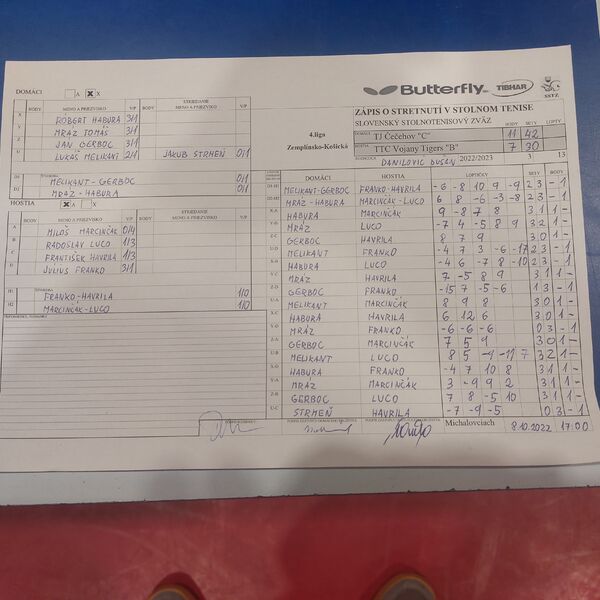 DOMÁCI A X X
Butterfly TIBHAR SSTZ
BODY MENO A PRIEZVISKO V/P BODY STRIEDANIE MENO A PRIEZVISKO V/P
X RÓBERT HABURA 3/1
Y MRÁZ TOMÁŠ 3/1
Z JÁN GERBOC 3/1
U LUKÁŠ MELIKANT 2/1 JAKUB STRMEŇ 0/1
D1 MELIKANT-GERBOC 0/1
D2 MRÁZ-HABURA 0/1
HOSTIA A X X
BODY MENO A PRIEZVISKO V/P BODY STRIEDANIE MENO A PRIEZVISKO V/P
A MILOŠ MARCINČÁK 0/4
B RADOSLAV LUCO 1/3
C FRANTIŠEK HAVRILA 1/3
D JÚLIUS FRANKO 3/1
H1 FRANKO-HAVRILA 1/0
H2 MARCINČÁK-LUCO 1/0
4.liga
Zemplínsko-Košická
ZÁPIS O STRETNUTÍ V STOLNOM TENISE
SLOVENSKÝ STOLNOTENISOVÝ ZVÄZ BODY SETY LOPTY
DOMÁCI TJ Čečehov "C" 11 42
HOSTIA TTC Vojany Tigers "B" 7 30
DANILOVIČ DUŠAN 2022/2023 3 13
DOMÁCI HOSTIA LOPTIČKY SETY BODY
D1-H1 MELIKANT-GERBOC FRANKO-HAVRILA -6 -8 10 9 -9 2 3 - 1
D2-H2 MRÁZ-HABURA MARCINČÁK-LUCO 6 8 -6 -3 -8 2 3 - 1
X-A HABURA MARCINČÁK 9 -8 7 8 3 1 1 -
Y-B MRÁZ LUCO -7 4 -5 8 9 3 2 1 -
Z-C GERBOC HAVRILA 8 7 9 3 0 1 -
U-D MELIKANT FRANKO -4 7 3 -6 -17 2 3 - 1
X-B HABURA LUCO -4 6 -7 8 -10 2 3 - 1
Y-C MRÁZ HAVRILA 7 -5 8 9 3 1 1 -
Z-D GERBOC FRANKO -15 7 -5 -6 1 3 - 1
U-A MELIKANT MARCINČÁK 8 9 8 3 0 1 -
X-C HABURA HAVRILA 6 12 6 3 0 1 -
Y-D MRÁZ FRANKO -6 -6 -6 0 3 - 1
Z-A GERBOC MARCINČÁK 7 5 9 3 0 1 -
U-B MELIKANT LUCO 8 5 -4 -11 7 3 2 1 -
X-D HABURA FRANKO -4 7 10 8 3 1 1 -
Y-A MRÁZ MARCINČÁK 3 -9 9 2 3 1 1 -
Z-B GERBOC LUCO 7 8 -5 10 3 1 1 -
U-C STRMEŇ HAVRILA -7 -9 -5 0 3 - 1
Michalovciach 8.10.2022 17:00